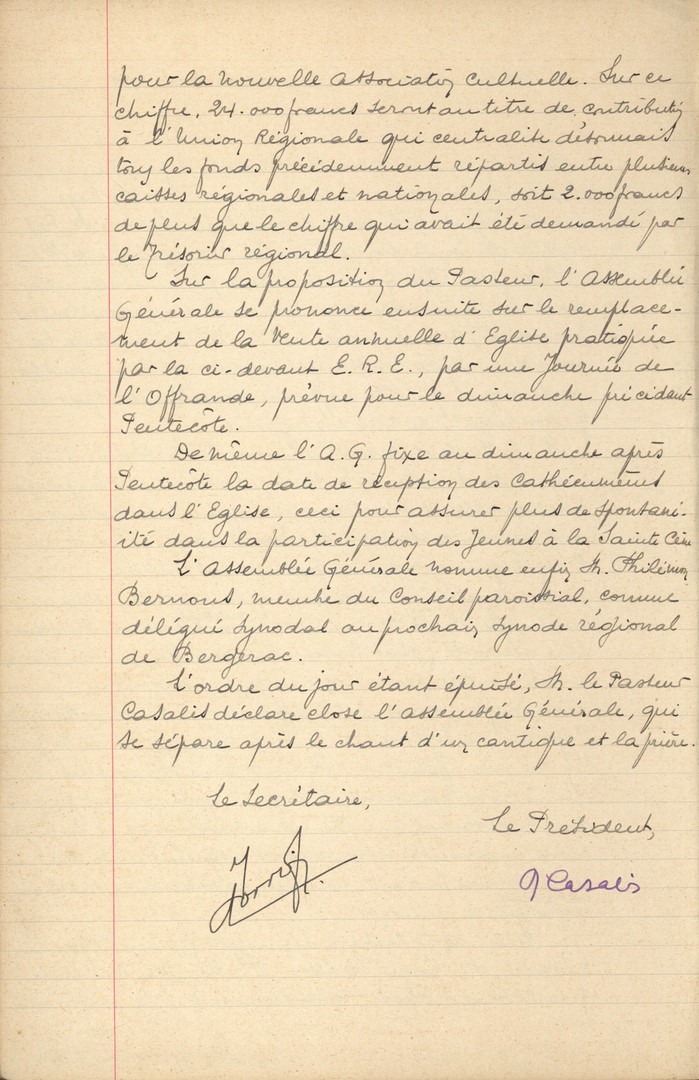 pour la nouvelle Association Cultuelle. Sur ce
chiffre, 24.000 francs seront au titre de contribution
à l'Union Régionale qui centralise désormais
tous les fonds précédemment répartis entre plusieurs
caisses régionales et nationales, soit 2.000 francs
de plus que le chiffre qui avait été demandé par
le Trésorier régional.
Sur la proposition du Pasteur, l'Assemblée
Générale se prononce ensuite sur le remplace-
ment de la Vente annuelle d'Eglise pratiquée
par la ci-devant E.R.E., par une Journée de
l'Offrande, prévue pour le dimanche précédant
Pentecôte.
De même l'A.G. fixe au dimanche après
Pentecôte la date de réception des Cathécumènes
dans l'Eglise, ceci pour assurer plus de spontané-
ité dans la participation des Jeunes à la Sainte Cène
L'Assemblée Générale nomme enfin M. Philémon
Bernous, membre du Conseil paroissial, comme
délégué synodal au prochain Synode régional
de Bergerac.
L'ordre du jour étant épuisé, M. le Pasteur
Casalis déclare close l'assemblée Générale, qui
se sépare après le chant d'un cantique et la prière.
Le Secrétaire,
Le Président,
Casalis